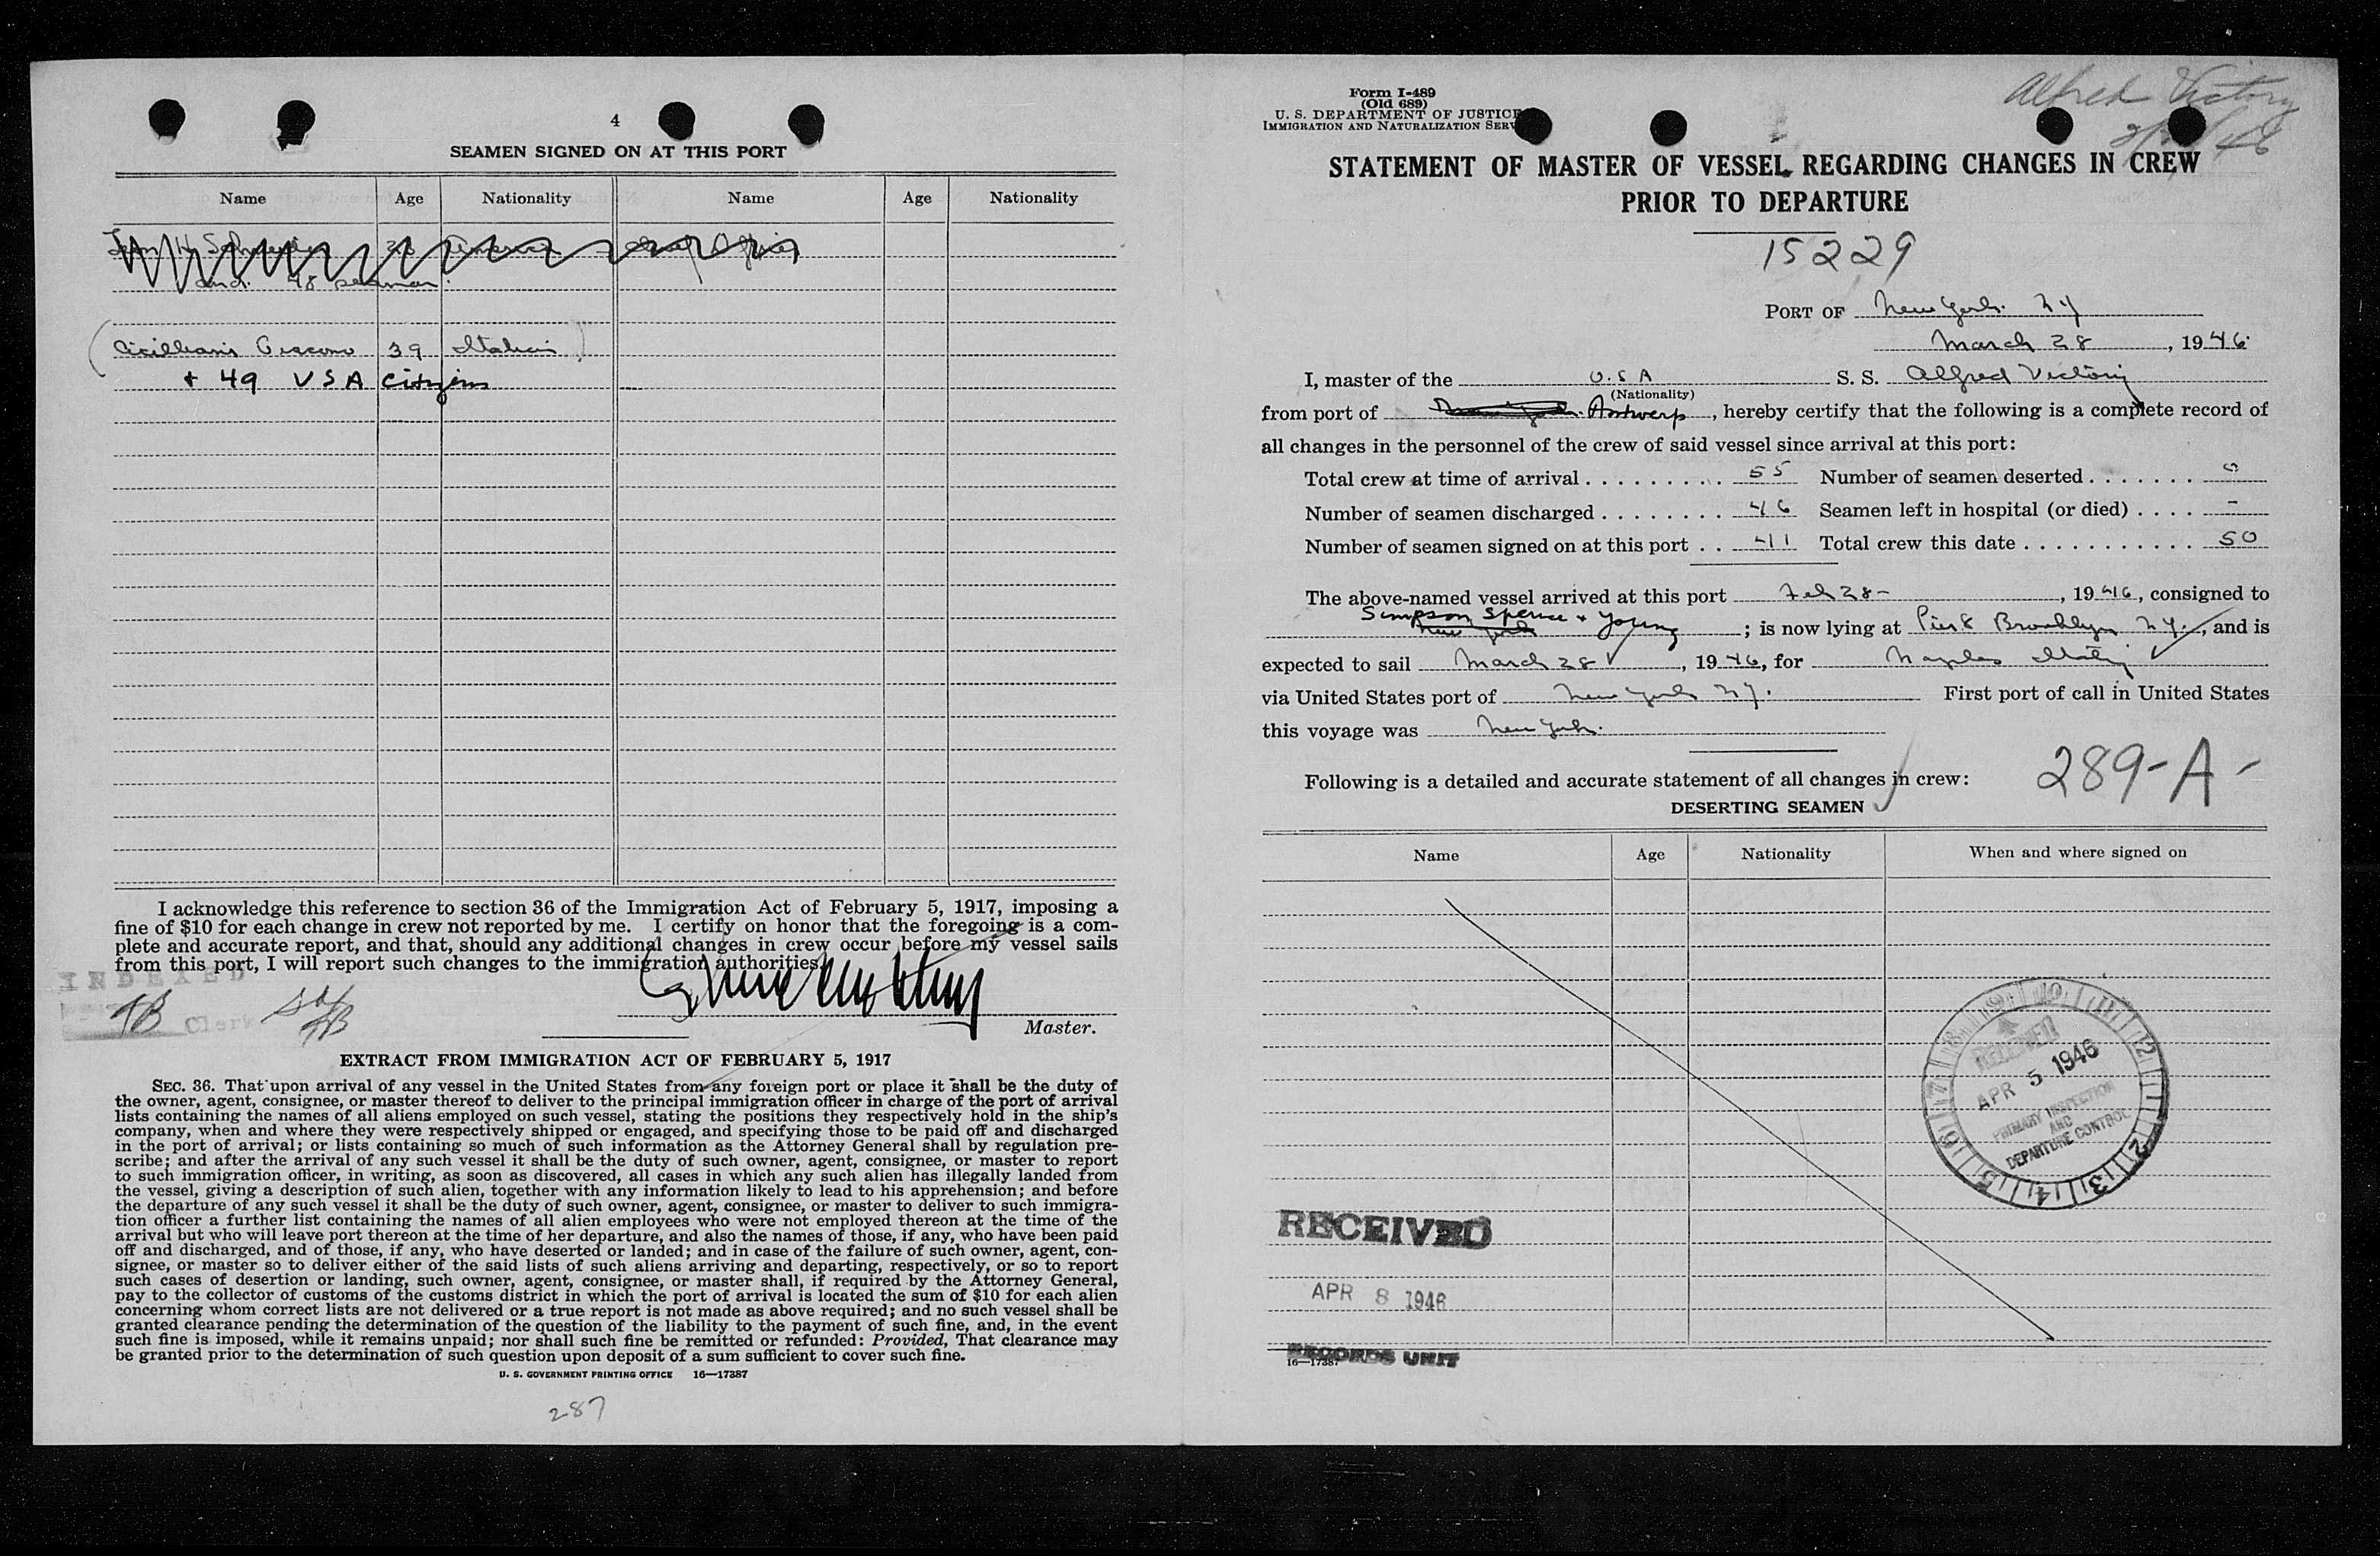 4
SEAMEN SIGNED ON AT THIS PORT
Name Age Nationality Name Age Nationality
and 48 seaman.
39 Italian
+ 49 USA Citizens
I acknowledge this reference to section 36 of the Immigration Act of February 5, 1917, imposing a
fine of $10 for each change in crew not reported by me. I certify on honor that the foregoing is a com-
plete and accurate report, and that, should any additional changes in crew occur before my vessel sails
from this port, I will report such changes to the immigration authorities.
INDEXED
Clerk
Master.
EXTRACT FROM IMMIGRATION ACT OF FEBRUARY 5, 1917
SEC. 36. That upon arrival of any vessel in the United States from any foreign port or place it shall be the duty of
the owner, agent, consignee, or master thereof to deliver to the principal immigration officer in charge of the port of arrival
lists containing the names of all aliens employed on such vessel, stating the positions they respectively hold in the ship's
company, when and where they were respectively shipped or engaged, and specifying those to be paid off and discharged
in the port of arrival; or lists containing so much of such information as the Attorney General shall by regulation pre-
scribe; and after the arrival of any such vessel it shall be the duty of such owner, agent, consignee, or master to report
to such immigration officer, in writing, as soon as discovered, all cases in which any such alien has illegally landed from
the vessel, giving a description of such alien, together with any information likely to lead to his apprehension; and before
the departure of any such vessel it shall be the duty of such owner, agent, consignee, or master to deliver to such immigra-
tion officer a further list containing the names of all alien employees who were not employed thereon at the time of the
arrival but who will leave port thereon at the time of her departure, and also the names of those, if any, who have been paid
off and discharged, and of those, if any, who have deserted or landed; and in case of the failure of such owner, agent, con-
signee, or master so to deliver either of the said lists of such aliens arriving and departing, respectively, or so to report
such cases of desertion or landing, such owner, agent, consignee, or master shall, if required by the Attorney General,
pay to the collector of customs of the customs district in which the port of arrival is located the sum of $10 for each alien
concerning whom correct lists are not delivered or a true report is not made as above required; and no such vessel shall be
granted clearance pending the determination of the question of the liability to the payment of such fine, and, in the event
such fine is imposed, while it remains unpaid; nor shall such fine be remitted or refunded: Provided, That clearance may
be granted prior to the determination of such question upon deposit of a sum sufficient to cover such fine.
U. S. GOVERNMENT PRINTING OFFICE 16—17387
287
Form I-489
(Old 689)
U. S. DEPARTMENT OF JUSTICE
IMMIGRATION AND NATURALIZATION SERV
Alfred Victory
STATEMENT OF MASTER OF VESSEL REGARDING CHANGES IN CREW
PRIOR TO DEPARTURE
15229
PORT OF New York. NY
March 28, 1946.
I, master of the U.S.A S. S. Alfred Victory
(Nationality)
from port of Antwerp, hereby certify that the following is a complete record of
all changes in the personnel of the crew of said vessel since arrival at this port:
Total crew at time of arrival . . . . . . . . . 55 Number of seamen deserted . . . . . . . 0
Number of seamen discharged . . . . . . . . 46 Seamen left in hospital (or died) . . . . -
Number of seamen signed on at this port . . 41 Total crew this date . . . . . . . . . . . 50
The above-named vessel arrived at this port Feb 28-, 1946, consigned to
Simpson Spence + Young
New York ; is now lying at Pier 8 Brooklyn N.Y., and is
expected to sail March 28, 1946, for Naples Italy
via United States port of New York NY. First port of call in United States
this voyage was New York.
Following is a detailed and accurate statement of all changes in crew: 289-A-
DESERTING SEAMEN
Name Age Nationality When and where signed on
9 10 11 12 1 2 3 4 5 6 7 8
RECEIVED
APR 5 1946
PRIMARY INSPECTION
AND
DEPARTURE CONTROL
RECEIVED
APR 8 1946
RECORDS UNIT
16—17387